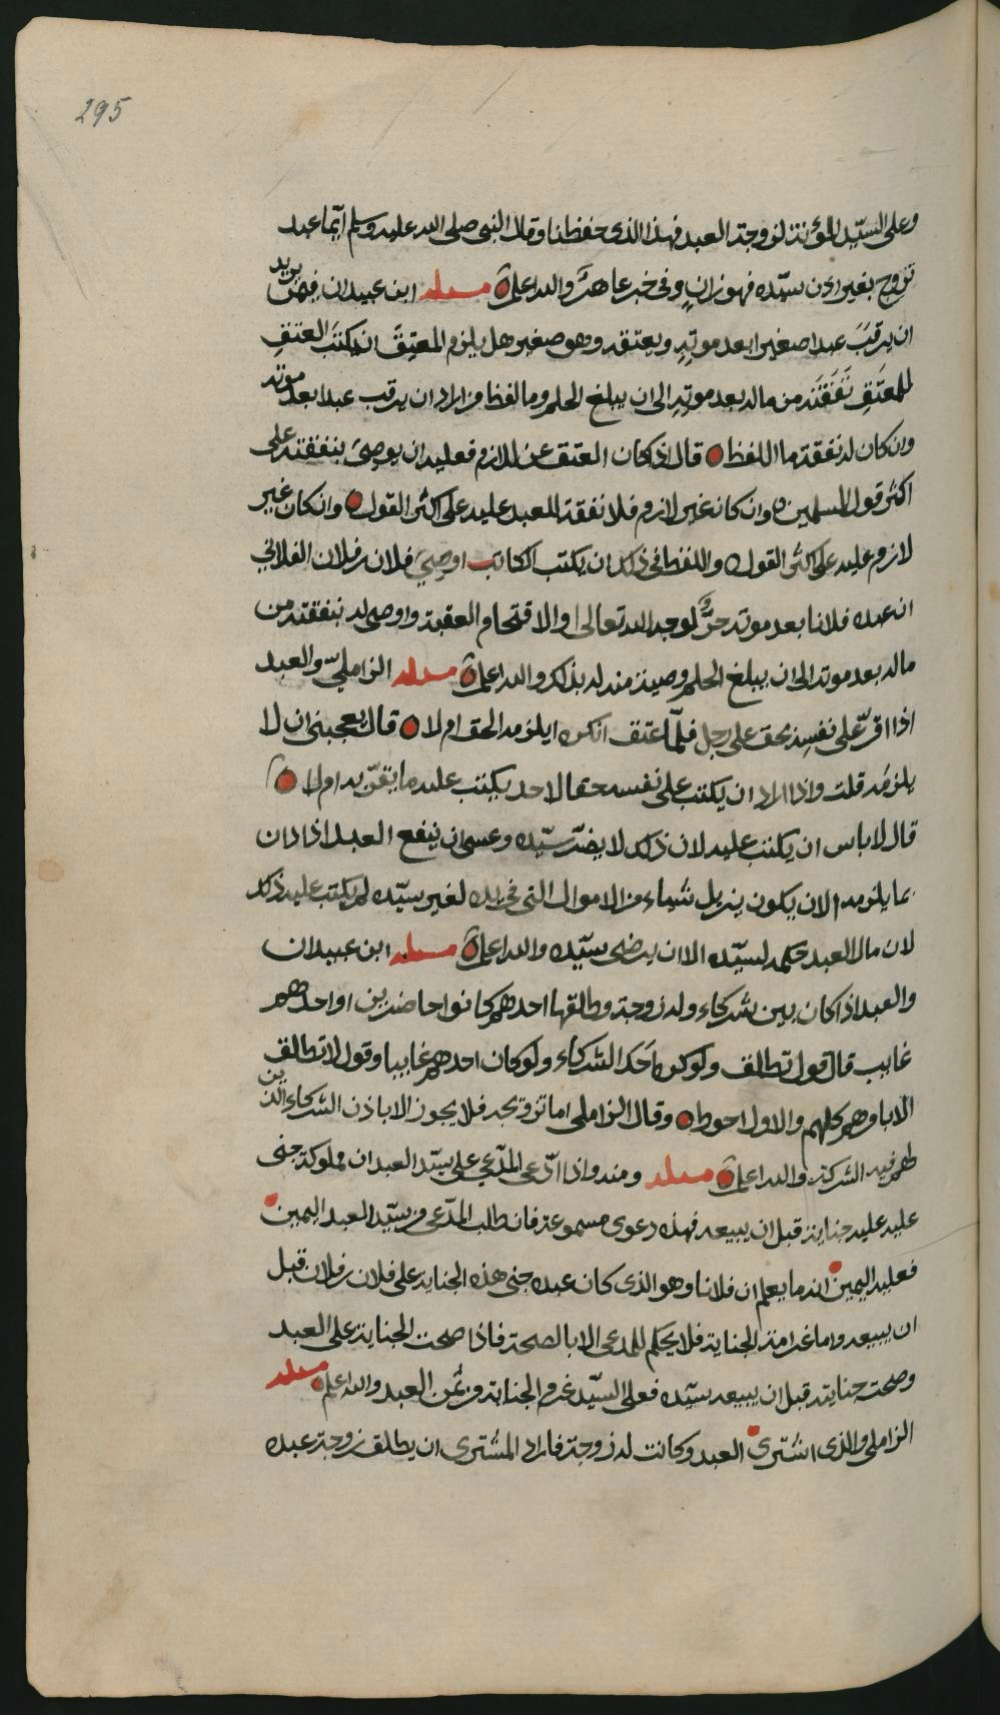 295
وعلى السيّد المؤنة لزوجة العبد فهذا الذى حفظنا وقال النبى صلى الله عليه وسلم ايّما عبد
تزوج بغير اذن سيّده فهو زانٍ وفى خبر عاهر والله اعلم مسئله ابن عبيدان فيمن يريد
ان يرقب عبدا صغيرا بعد موته ويعتقه وهو صغير هل يلزم المعتِق ان يكتب العتق
للمعتَق نَفَقَته من ماله بعد موته الى ان يبلغ الحلم وما لفظ من اراد ان يرقب عبدا بعد موته
وان كان له نفقة ما اللفظ قال اذا كان العتق عن لازم فعليه ان يوصى بنفقته على
اكثر قول المسلمين وان كان غير لازم فلا نفقة للعبد عليه على اكثر القول وان كان غير
لازم عليه على اكثر القول واللفظ فى ذلك ان يكتب الكاتب اوصى فلان بن فلان الفلانى
ان عبده فلانا بعد موته حرٌّ لوجه الله تعالى او لاقتحام العقبة واوصى له بنفقته من
ماله بعد موته الى ان يبلغ الحلم وصية منه له بذلك والله اعلم مسئله الزاملىّ والعبد
اذا اقرّ على نفسه بحق على رجل فلمّا عتق انكره ايلزمه الحق ام لا قال يعجبنى ان لا
يلزمَه قلت واذا اراد ان يكتب على نفسه حقا لاحد يكتب عليه ما يقرّ به ام لا
قال لا باس ان يكتب عليه لان ذلك لا يضرّ سيّده وعسى ان ينفع العبد اذا دان
بما يلزمه الا ان يكون يزيل شيئاء من الاموال التى فى يده لغير سيّده لم يكتب عليه ذلك
لان مال العبد حكمه لسيّده الا ان يرضى سيّده والله اعلم مسئله ابن عبيدان
والعبد اذا كان بين شركاء وله زوجة وطلقها احدهم كانوا حاضرين او احدهم
غايب قال قول تطلق ولو كره احَد الشركاء ولو كان احدهم غايبا وقول لا تطلق
الا باوهم كلهم والاول احوط وقال الزاملى اما تزويجه فلا يجوز الا باذن الشركاء الذين
لهم فيه الشركة والله اعلم مسئله ومنه واذا ادّعى المدّعي على سيّد العبد ان مملوكه جنى
عليه عليه جناية قبل ان يبيعه فهذه دعوى مسموعة فان طلب المدّعى من سيّد العبد اليمين
فعليه اليمين انه ما يعلم ان فلانا وهو الذى كان عبده جنى هذه الجناية على فلان بن فلان قبل
ان يبيعه واما غرامة الجناية فلا يحكم للمدعى الا بالصحة فاذا صحت الجناية على العبد
وصحت جنايته قبل ان يبيعه سيّده فعلى السيّد غرم الجناية من ثمن العبد والله اعلم مسئله
الزاملى والذى اشترى العبد وكانت له زوجة فاراد المشترى ان يطلق زوجة عبده